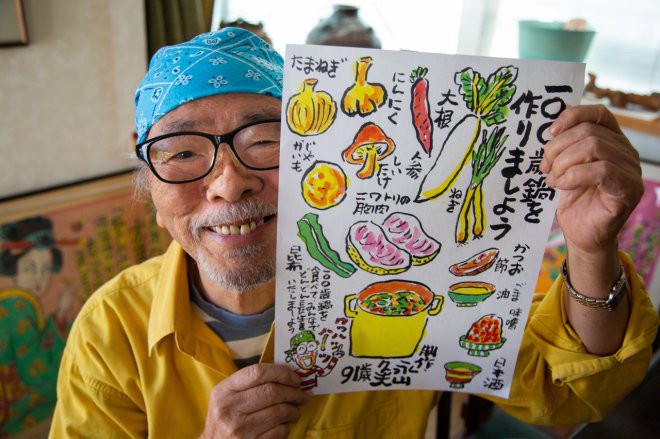 一〇〇歳鍋を
作りましょう
たまねぎ
にんにく
人参
大根
ねぎ
じゃ
がいも
しい
たけ
ニワトリの
胸肉
かつお
節
ごま
油
味噌
日本酒
昆布
一〇〇歳鍋を
食べてみんなで
どんどん長生き
いたしましょう
製作
91歳